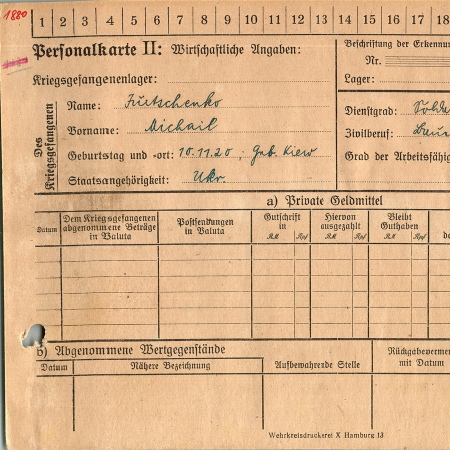 1880
1 2 3 4 5 6 7 8 9 10 11 12 13 14 15 16 17 18
Personalkarte II: Wirtschaftliche Angaben:
Beschriftung der Erkennu
Nr.
Kriegsgefangenenlager:
Lager:
Des Kriegsgefangenen
Name:
Dienstgrad: Solda
Vorname: Michail
Zivilberuf: Baue
Geburtstag und -ort: 10.11.20; Geb. Kiew
Grad der Arbeitsfähig
Staatsangehörigkeit: Ukr.
a) Private Geldmittel
Datum
Dem Kriegsgefangenen abgenommene Beträge in Valuta
Postsendungen in Valuta
Gutschrift in
RM Rpf
Hiervon ausgezahlt
RM Rpf
Bleibt Guthaben
RM Rpf
b) Abgenommene Wertgegenstände
Datum
Nähere Bezeichnung
Aufbewahrende Stelle
Rückgabeverme
mit Datum
Wehrkreisdruckerei X Hamburg 13